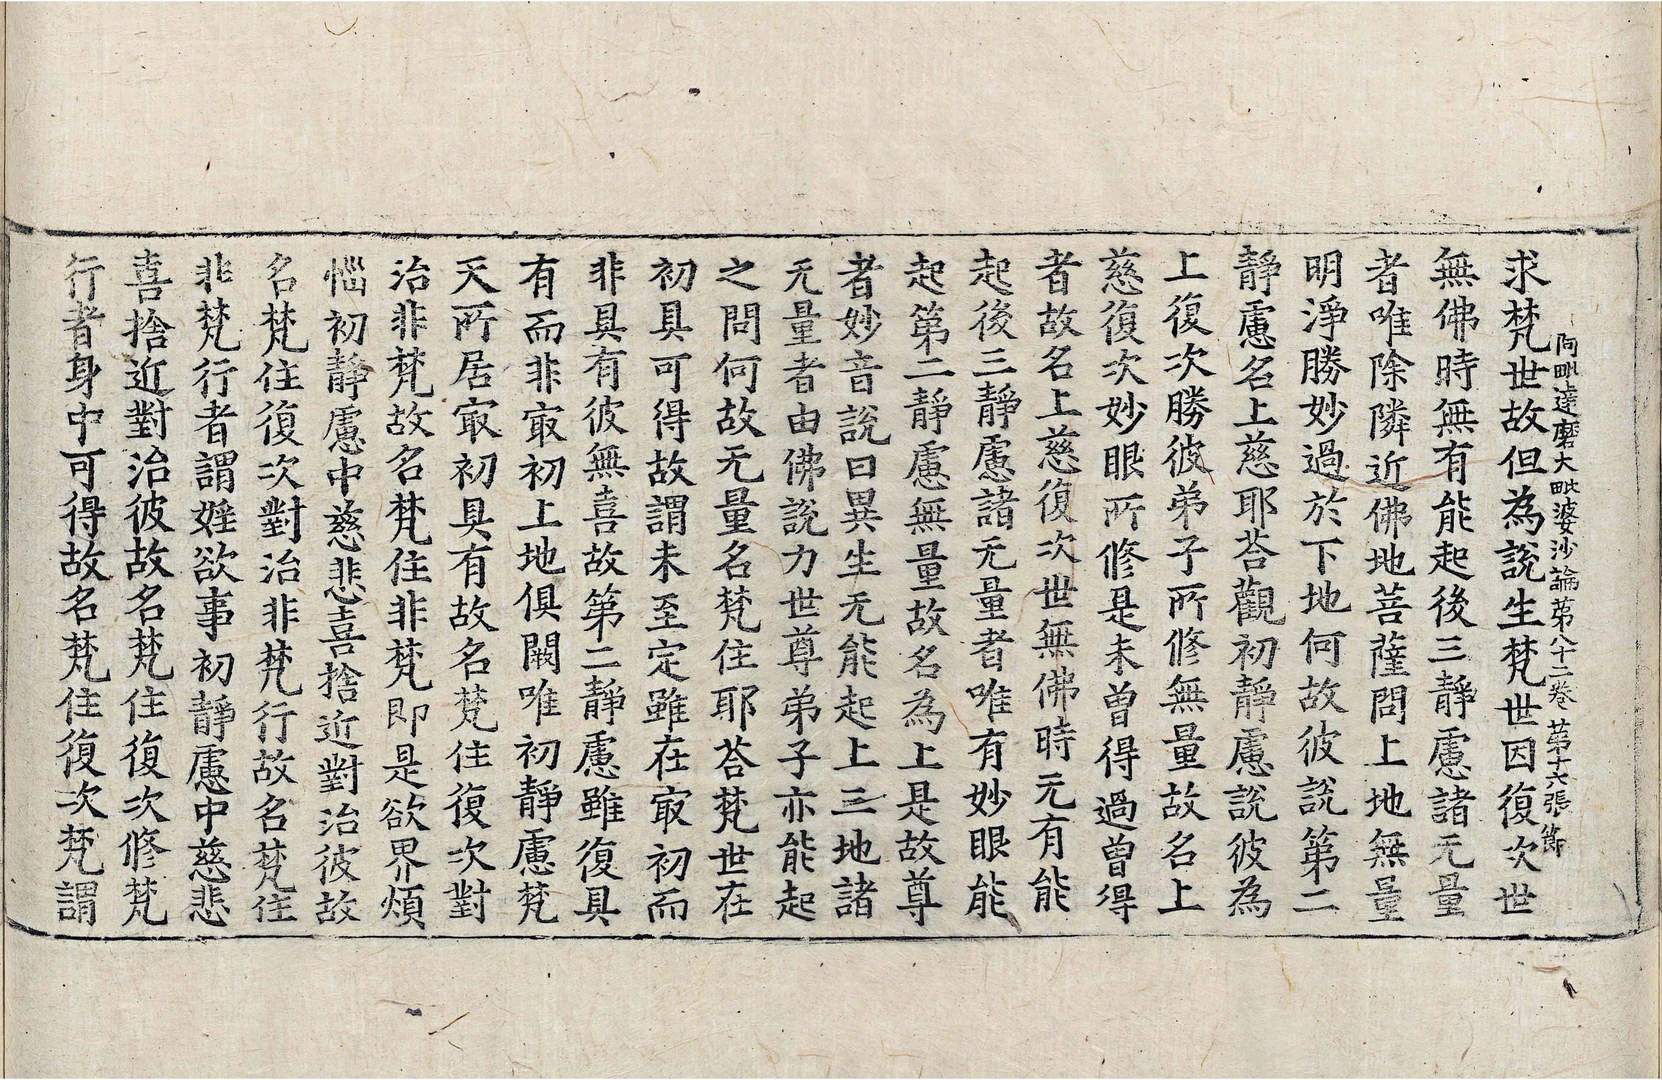 阿毗達磨大毗婆沙論第八十二卷　第十六張　節
求梵世故但為說生梵世因復次世
無佛時無有能起後三靜慮諸无量
者唯除隣近佛地菩薩問上地無量
明淨勝妙過於下地何故彼說第二
靜慮名上慈耶荅觀初靜慮說彼為
上復次勝彼弟子所修無量故名上
慈復次妙眼所修是未曾得過曾得
者故名上慈復次世無佛時无有能
起後三靜慮諸无量者唯有妙眼能
起第二靜慮無量故名為上是故尊
者妙音說曰異生无能起上三地諸
无量者由佛說力世尊弟子亦能起
之問何故无量名梵住耶荅梵世在
初具可得故謂未至定雖在㝡初而
非具有彼無喜故第二靜慮雖復具
有而非㝡初上地俱闕唯初靜慮梵
天所居㝡初具有故名梵住復次對
治非梵故名梵住非梵即是欲界煩
惱初靜慮中慈悲喜捨近對治彼故
名梵住復次對治非梵行故名梵住
非梵行者謂婬欲事初靜慮中慈悲
喜捨近對治彼故名梵住復次修梵
行者身中可得故名梵住復次梵謂